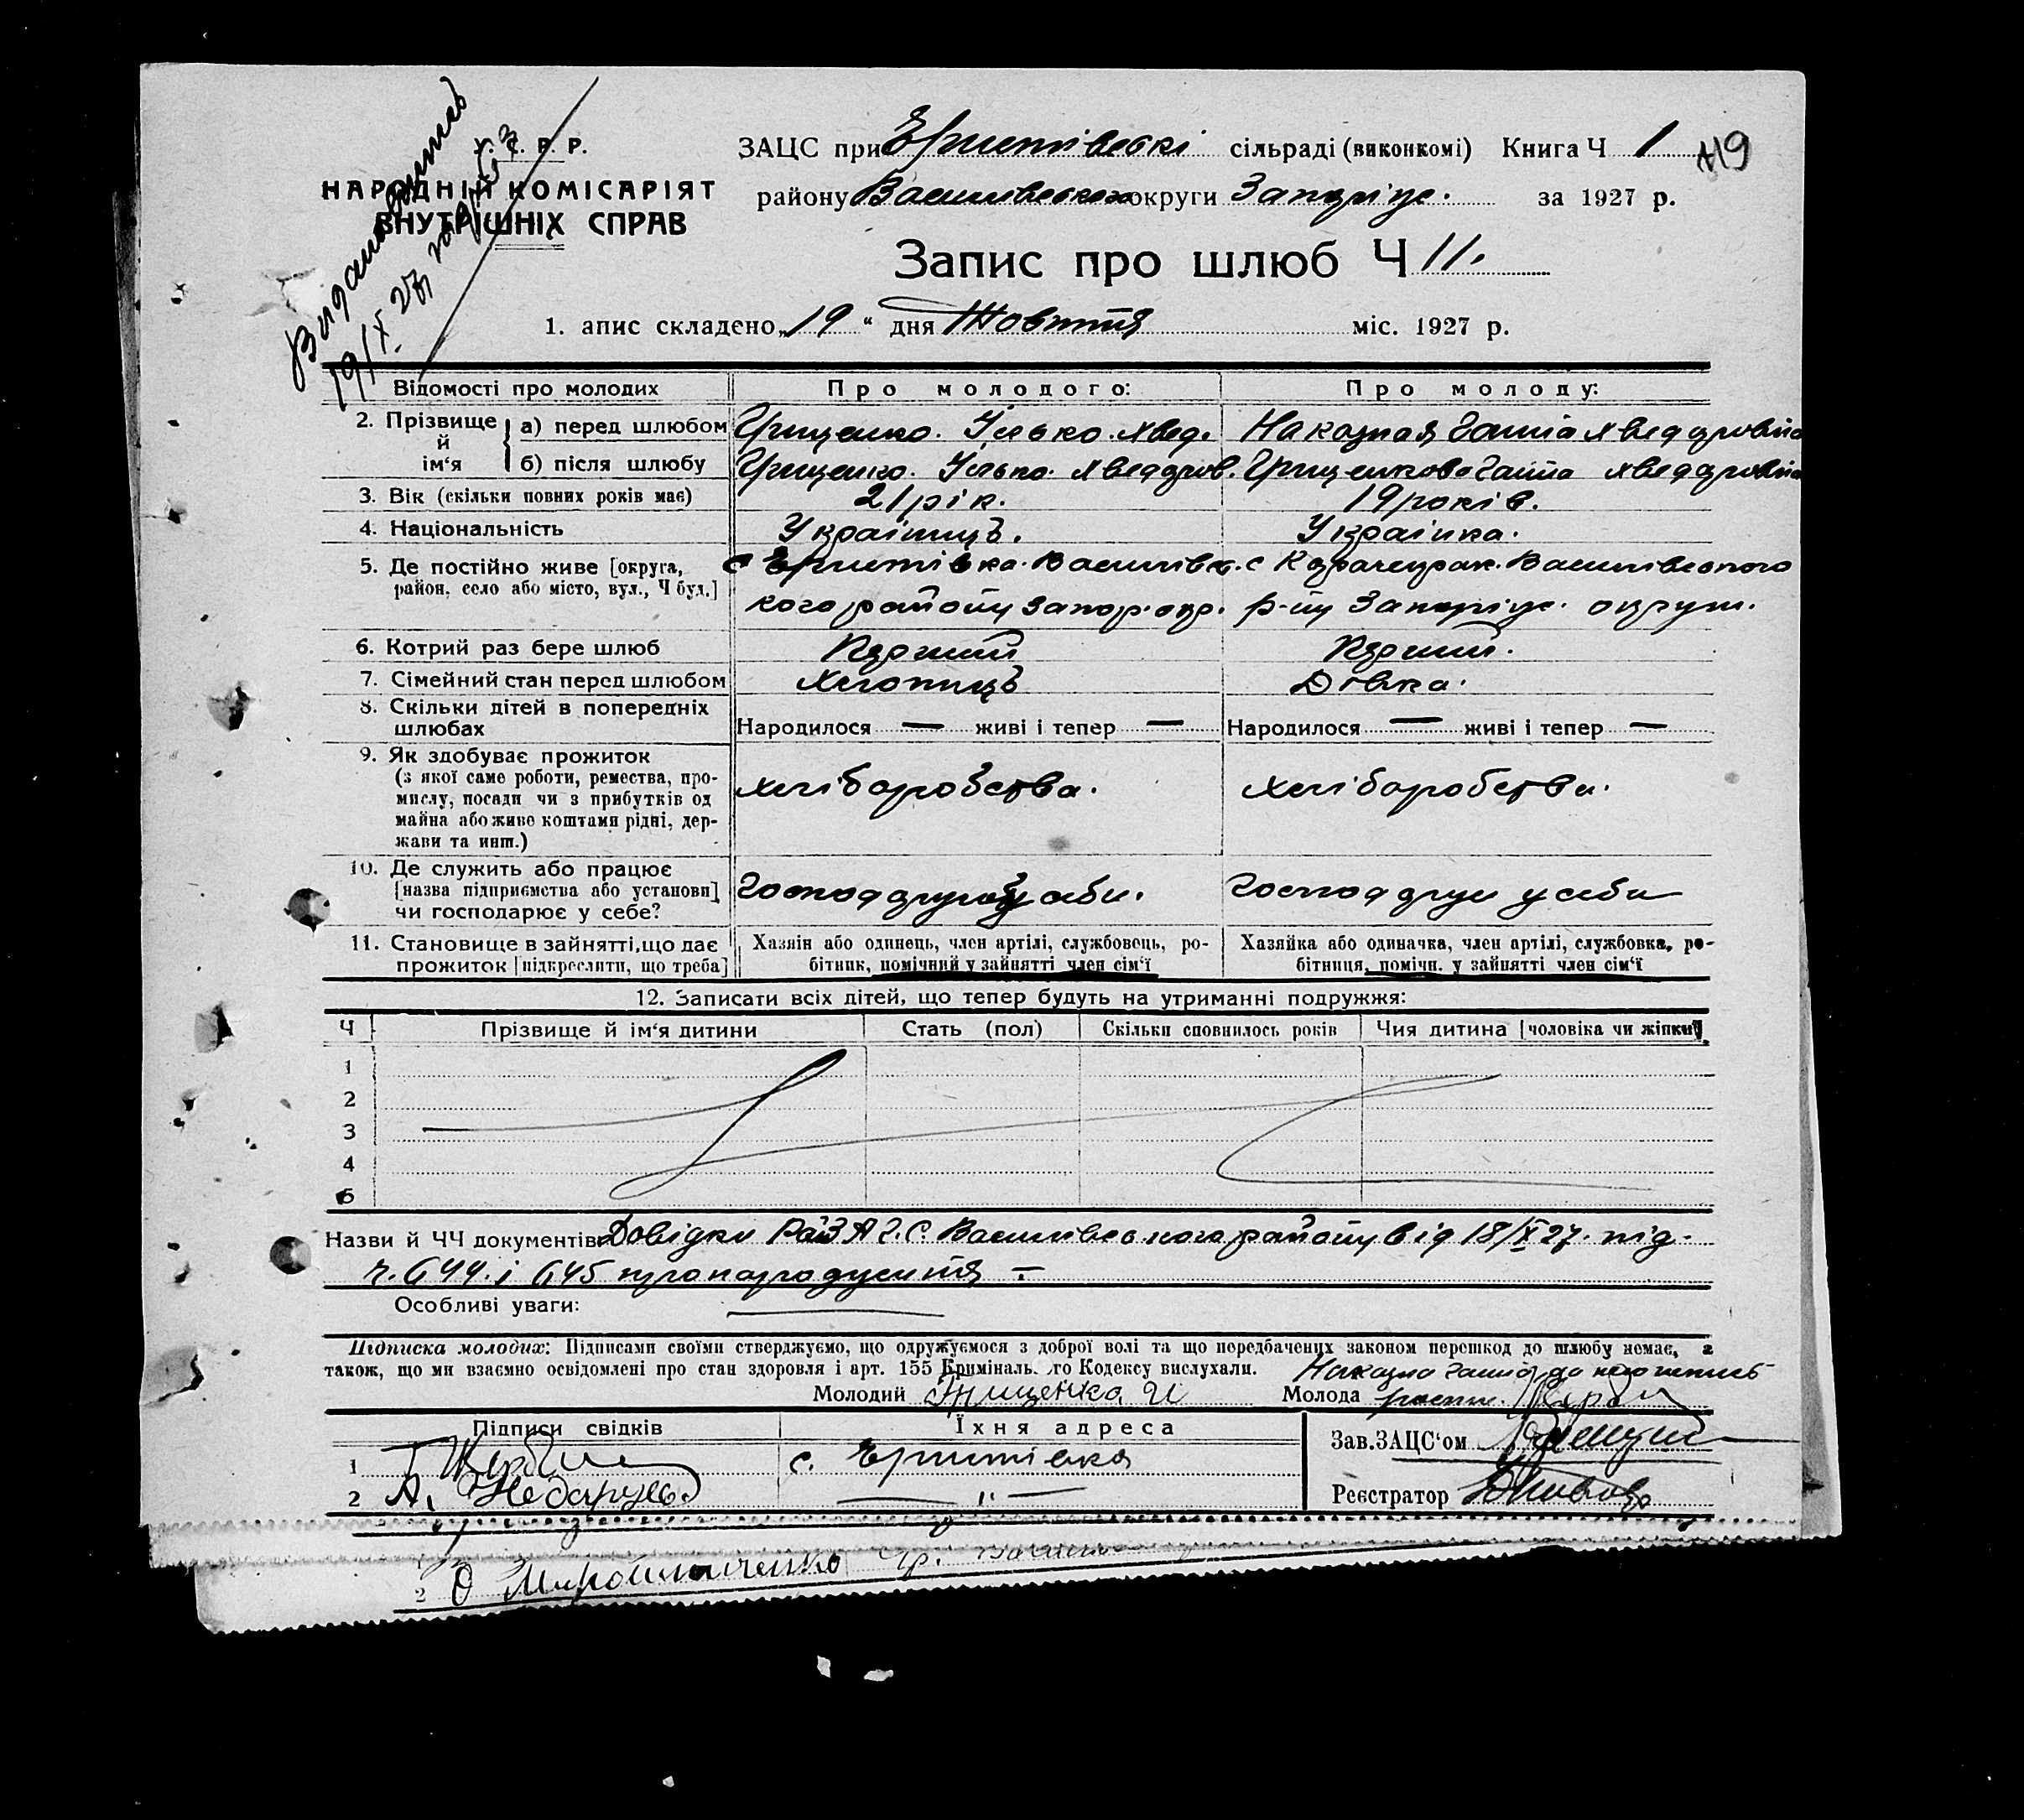 У. С. Р. Р.
НАРОДНІЙ КОМІСАРІЯТ
ВНУТРІШНІХ СПРАВ
19/X 27
ЗАЦС при сільраді (виконкомі) Книга Ч 1
119
району Василівського округи Запоріж. за 1927 р.
Запис про шлюб Ч 11.
1. апис складено „19“ дня Жовтня міс. 1927 р.
Відомості про молодих Про молодого: Про молоду:
2. Прізвище й ім‘я
а) перед шлюбом Грищенко. Ілько. Хвед. Наказная Ганна Хведоровна
б) після шлюбу Грищенко. Ілько. Хведоров. Грищенкова Ганна Хведоровна
3. Вік (скільки повних років має) 21 рік. 19 років.
4. Національність Україниць. Українка.
5. Де постійно живе [округа, с Василівс. с Карачекрак. Василівського
район, село або місто, вул., Ч буд.] кого району Запор. окр. р-ну Запоріж. округи.
6. Котрий раз бере шлюб Перший Перший.
7. Сімейний стан перед шлюбом Хлопиць Дівка.
8. Скільки дітей в попередніх
шлюбах Народилося — живі і тепер — Народилося — живі і тепер —
9. Як здобуває прожиток
(з якої саме роботи, ремества, про-
мислу, посади чи з прибутків од хліборобства. хліборобства.
майна або живе коштами рідні, дер-
жави та инш.)
10. Де служить або працює
[назва підприємства або установи] у себи. у себи
чи господарює у себе?
11. Становище в зайнятті, що дає Хазяін або одинець, член артілі, службовець, ро- Хазяйка або одиначка, член артілі, службовка, ро-
прожиток [підкреслити, що треба] бітник, помічний у зайнятті член сім‘ї бітниця, помічн. у зайнятті член сім‘ї
12. Записати всіх дітей, що тепер будуть на утриманні подружжя:
Ч Прізвище й ім‘я дитини Стать (пол) Скільки сповнилось років Чия дитина [чоловіка чи жінки]
1
2
3
4
5
Назви й ЧЧ документів Довідки РайЗАГС Василівського району від 18/X 27. під.
ч. 644. і 645 про народження —
Особливі уваги:
Підписка молодих: Підписами своїми стверджуємо, що одружуємося з доброї волі та що передбачених законом перешкод до шлюбу немає, а
також, що ми взаємно освідомлені про стан здоровля і арт. 155 Криміналь. го Кодексу вислухали.
Молодий Грищенка И Молода
Підписи свідків Їхня адреса
Зав. ЗАЦС‘ом
1 с.
2 А. — „ —
Реєстратор
2 О Мирошниченко